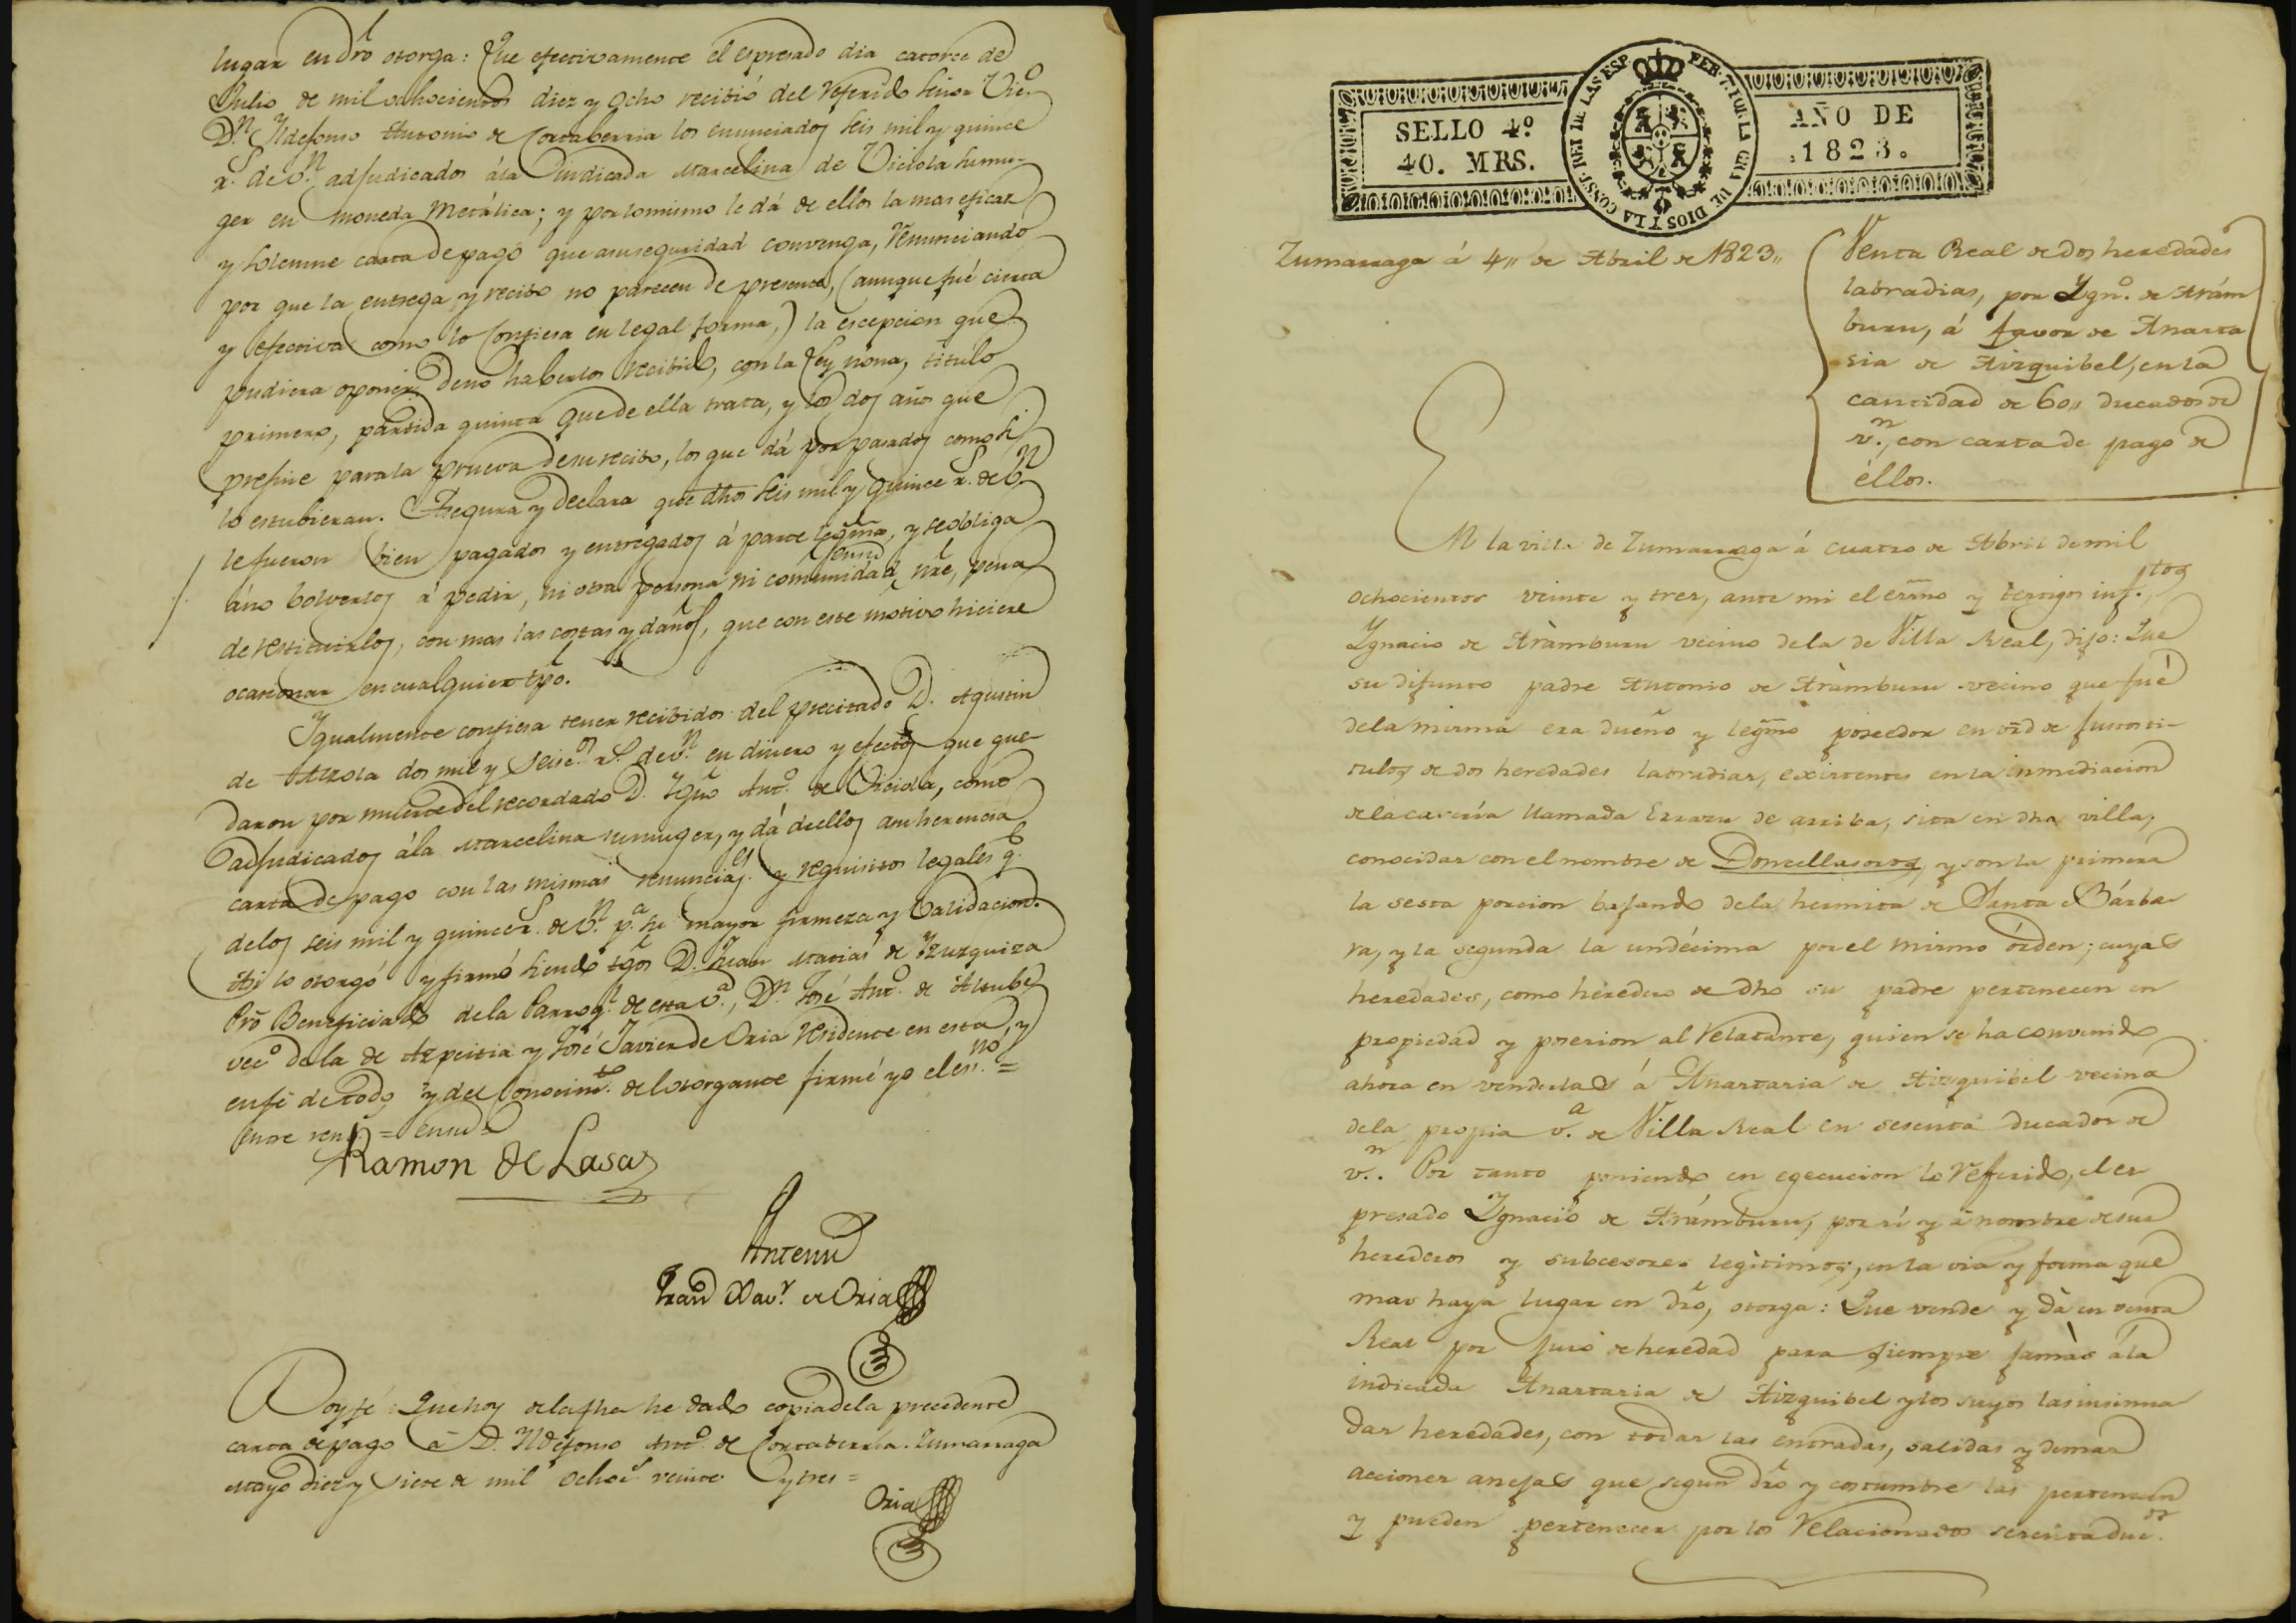 lugar en dro otorga: Que efectivamente el espresado dia catorce de
Julio de mil ochocientos diez y ocho recibió del referido Señor Vic.o
D.n Yldefonso Antonio de Cortaberria los enunciados seis mil y quince
r.s de v.n adjudicados á la indicada Marcelina de Oiciola su mu-
ger en moneda metálica; y por lo mismo le dá de ellos la mas eficaz
y solemne carta de pago que a su seguridad convenga, renunciando
por que la entrega y recibo no parecen de presente, (aunque fué cierta
y efectiva como lo confiesa en legal forma,) la escepcion que
pudiera oponer de no haberlos recibido, con la Ley nona, titulo
primero, partida quinta que de ella trata, y los dos años que
prefine para la prueva de su recibo, los que dá por pasados como si
lo estubieran. Asegura y declara que dhos seis mil y quince r.s de v.n
le fueron bien pagados y entregados á parte legma, y se obliga
á no bolverlos á pedir, ni otra persona ni comunidad en su nre, pena
de restituirlos, con mas las costas y daños, que con este motivo hiciere
ocasionar en cualquier tpo.
Igualmente confiesa tener recibidos del precitado D. Agustin
de Alzola dos mil y seisc.os r.s de v.n en dinero y efectos que que-
daron por muerte del recordado D. Igno Ant.o de Oiciola, como
adjudicados á la Marcelina su muger, y dá de ellos a su herencia
carta de pago con las mismas renuncias y requisitos legales q.e
de los seis mil y quince r.s de v.n p.a su mayor firmeza y validacion.
Asi lo otorgó y firmó siendo tgos D. Juan Matias de Yzuzquiza
Pro Beneficiado de la Parroq.l de esta v.a, D.n José Ant.o de Alzube
vec.o de la de Azpeitia y José Javier de Oria residente en esta, y
en fé de todo y del conocim.to del otorgante firmé yo el es.no =
entre ren.s = en su =
Ramon de Lasa
Antemi
Fran.co Xav.r de Oria
Doy fé: Que hoy de la fha he dado copia de la precedente
carta de pago á D. Yldefonso Ant.o de Cortaberria. Zumarraga
Mayo diez y siete de mil ochoc.s veinte y tres =
Oria
SELLO 4º
40. MRS.
FER. 7. POR LA GRA. DE DIOS Y LA CONST. REI DE LAS ESP
AÑO DE
.1823.
Zumarraga á 4,, de Abril de 1823,,
Venta Real de dos heredades
labradias, por Ygn.o de Arám
buru, á favor de Anasta
sia de Aizquibel, en la
cantidad de 60,, ducados de
v.n, con carta de pago de
éllos.
En la villa de Zumarraga á cuatro de Abril de mil
ochocientos veinte y tres, ante mi el esrno y testigos inf.tos
Ygnacio de Arámburu vecino de la de Villa Real, dijo: Que
su difunto padre Antonio de Arámburu vecino que fué
de la misma era dueño y legmo poseedor en vrd de justos ti-
tulos de dos heredades labradias, existentes en la inmediacion
de la caseria llamada Errazu de arriba, sita en dha villa,
conocidas con el nombre de Doncellusoros, y son la primera
la sesta porcion bajando de la hermita de Santa Bárba-
ra, y la segunda la undécima por el mismo órden; cuyas
heredades, como heredero de dho su padre pertenecen en
propiedad y posesion al relatante, quien se ha convenido
ahora en venderlas á Anastasia de Aizquibel vecina
de la propia v.a de Villa Real en sesenta ducados de
v.n. Por tanto poniendo en egecucion lo referido, el es
presado Ygnacio de Arámburu, por sí y á nombre de sus
herederos y subcesores legitimos, en la via y forma que
mas haya lugar en dro, otorga: Que vende y dá en venta
Real por juro de heredad para siempre jamàs á la
indicada Anastasia de Aizquibel y los suyos las insinua
das heredades, con todas las entradas, salidas y demas
acciones anejas que segun dro y costumbre las pertenecen
y pueden pertenecer por los relacionados sesenta duc.os